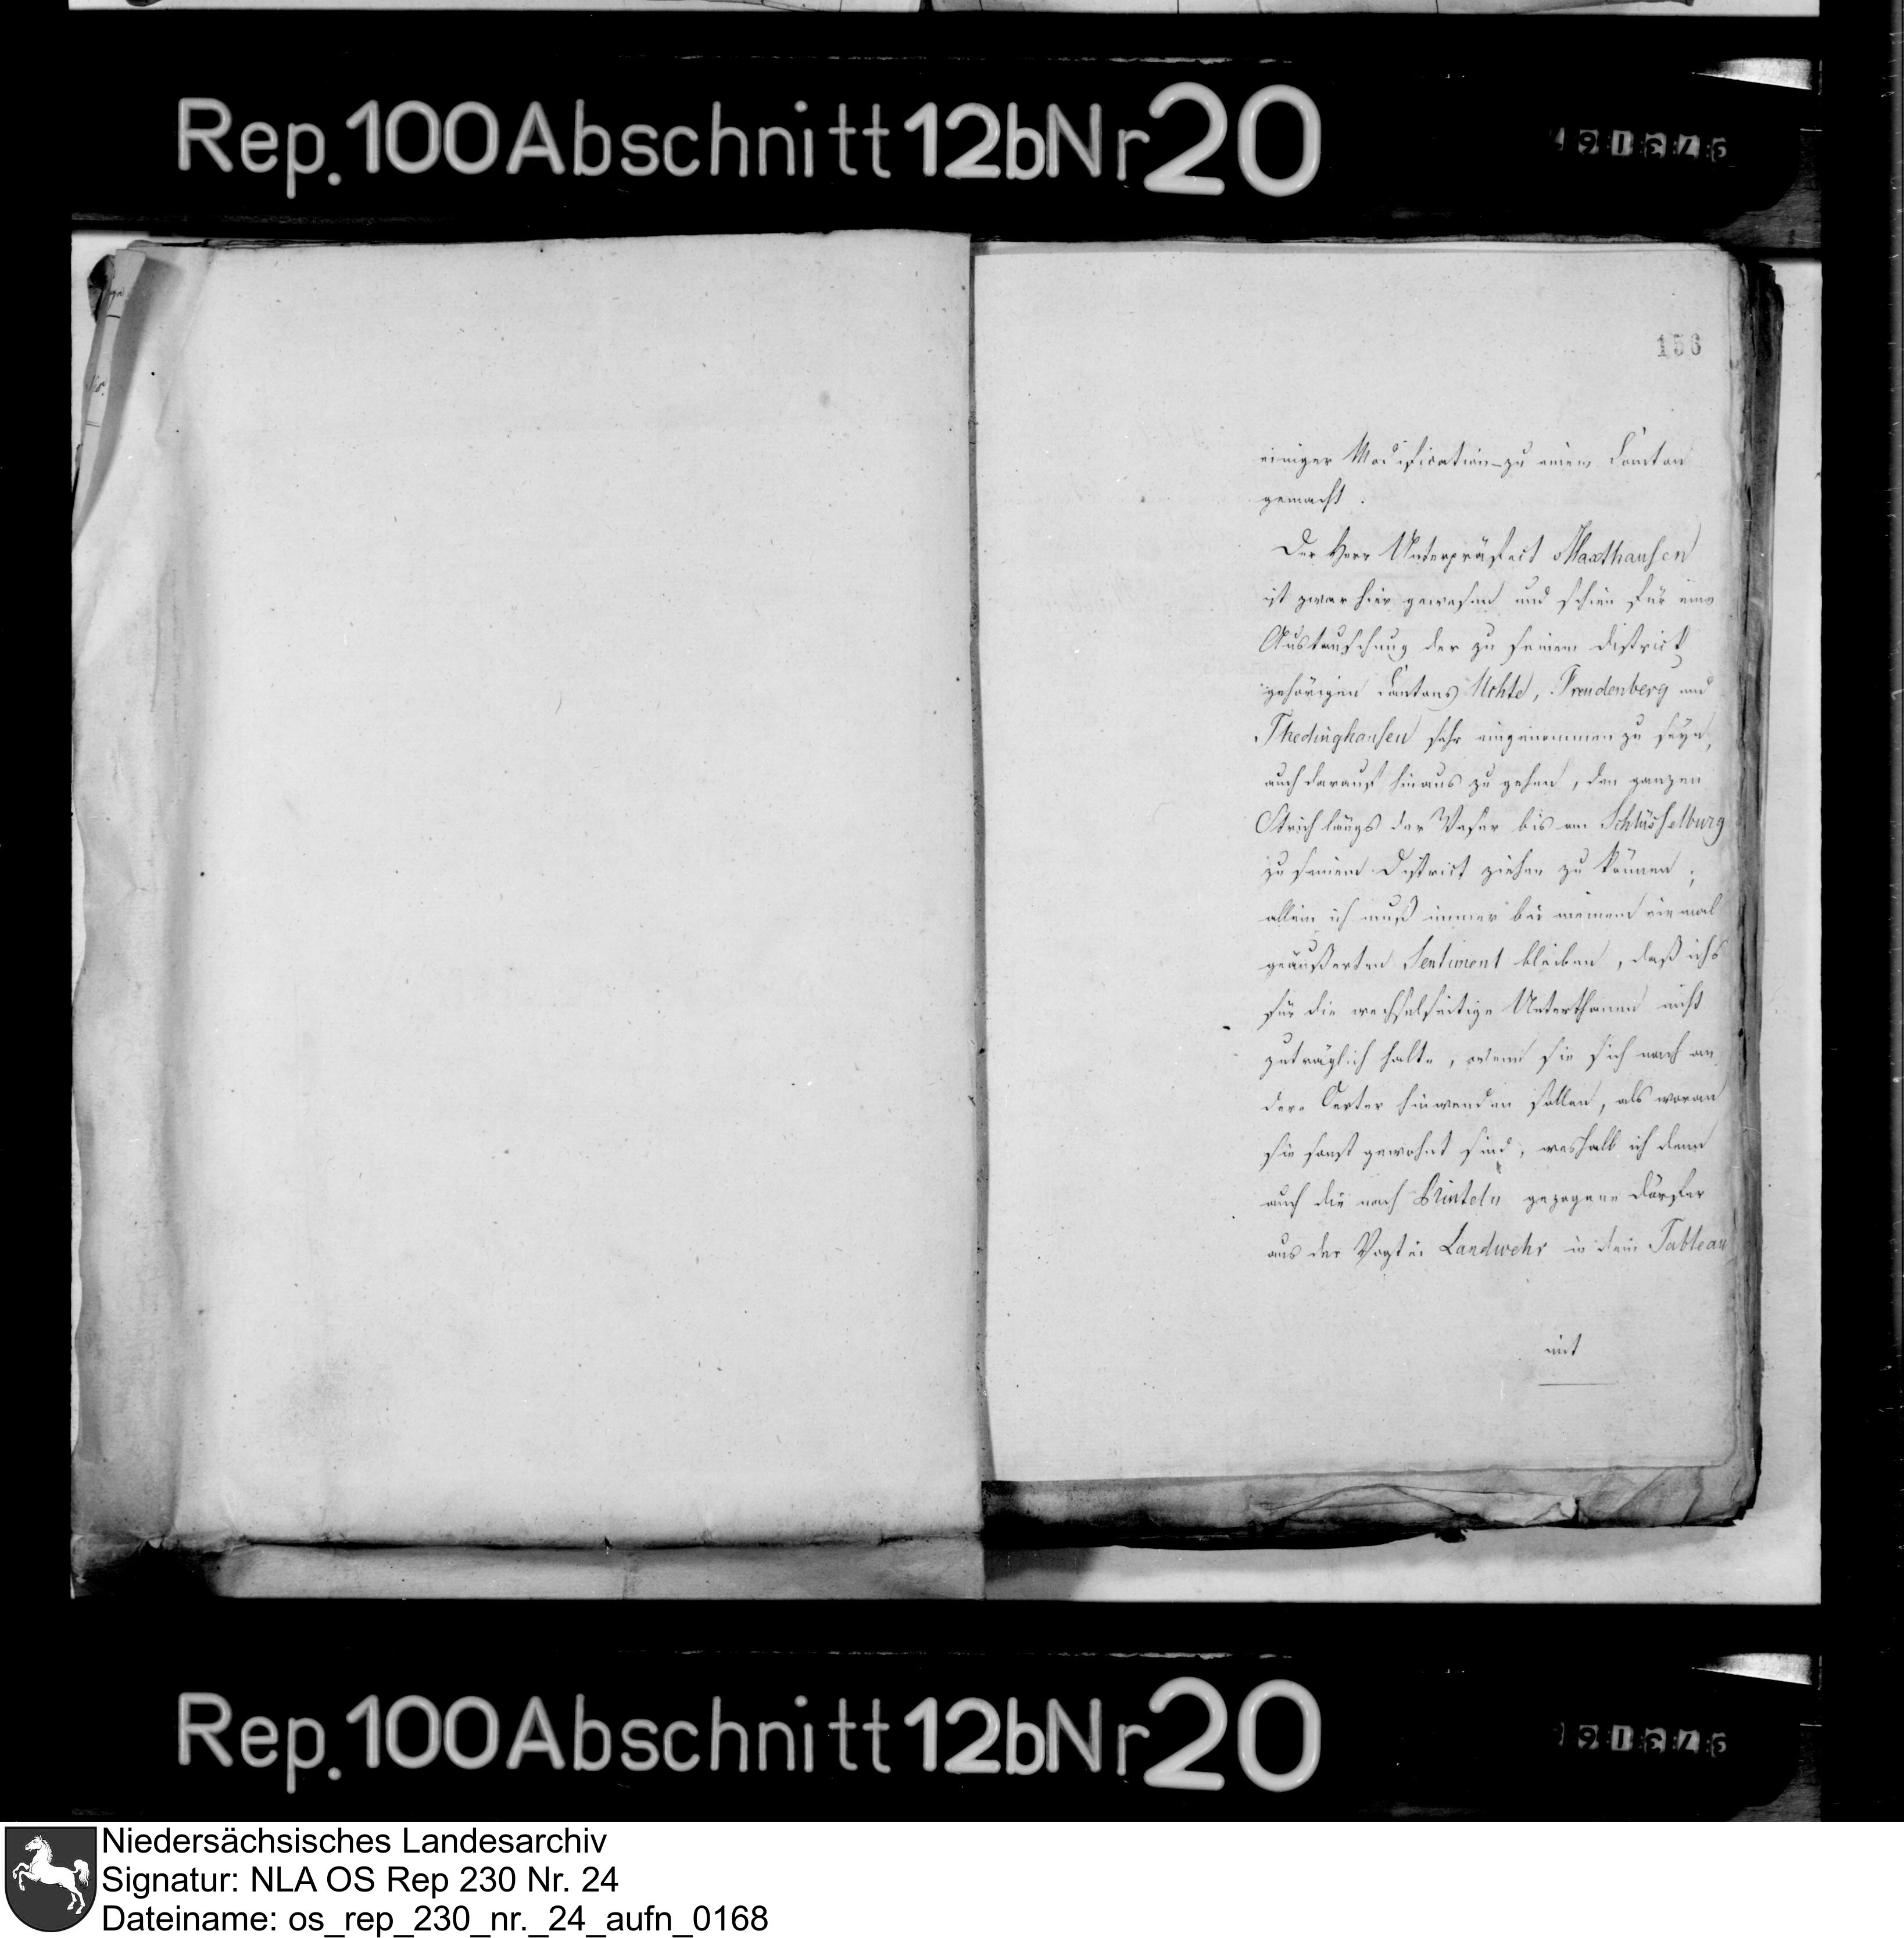 Rep. 100 Abschnitt 12b Nr 20
156
einiger Modification zu einem Canton
gemacht.
Der Herr Unterpräfect Haxthausen
ist zwar hier gewesen und schien für eine
Austauschung der zu seinem District
gehörigen Cantons Uchte, Freudenberg und
Thedinghausen sehr eingenommen zu seyn,
auch darauf hinaus zu gehen, den ganzen
Strich längs der Weser bis an Schlüsselburg
zu seinem District ziehen zu können;
allein ich muß immer bei meinem einmal
geäußerten Sentiment bleiben, daß ichs
für die wechselseitige Unterthanen nicht
zuträglich halte, wenn sie sich nach an
dere Oerter hinwenden sollen, als woran
sie sonst gewohnt sind, weshalb ich denn
auch die nach Rinteln gezogene Dörfer
aus der Vogtei Landwehr in dem Tableau
mit
Rep. 100 Abschnitt 12b Nr 20
Niedersächsisches Landesarchiv
Signatur: NLA OS Rep 230 Nr. 24
Dateiname: os_rep_230_nr._24_aufn_0168